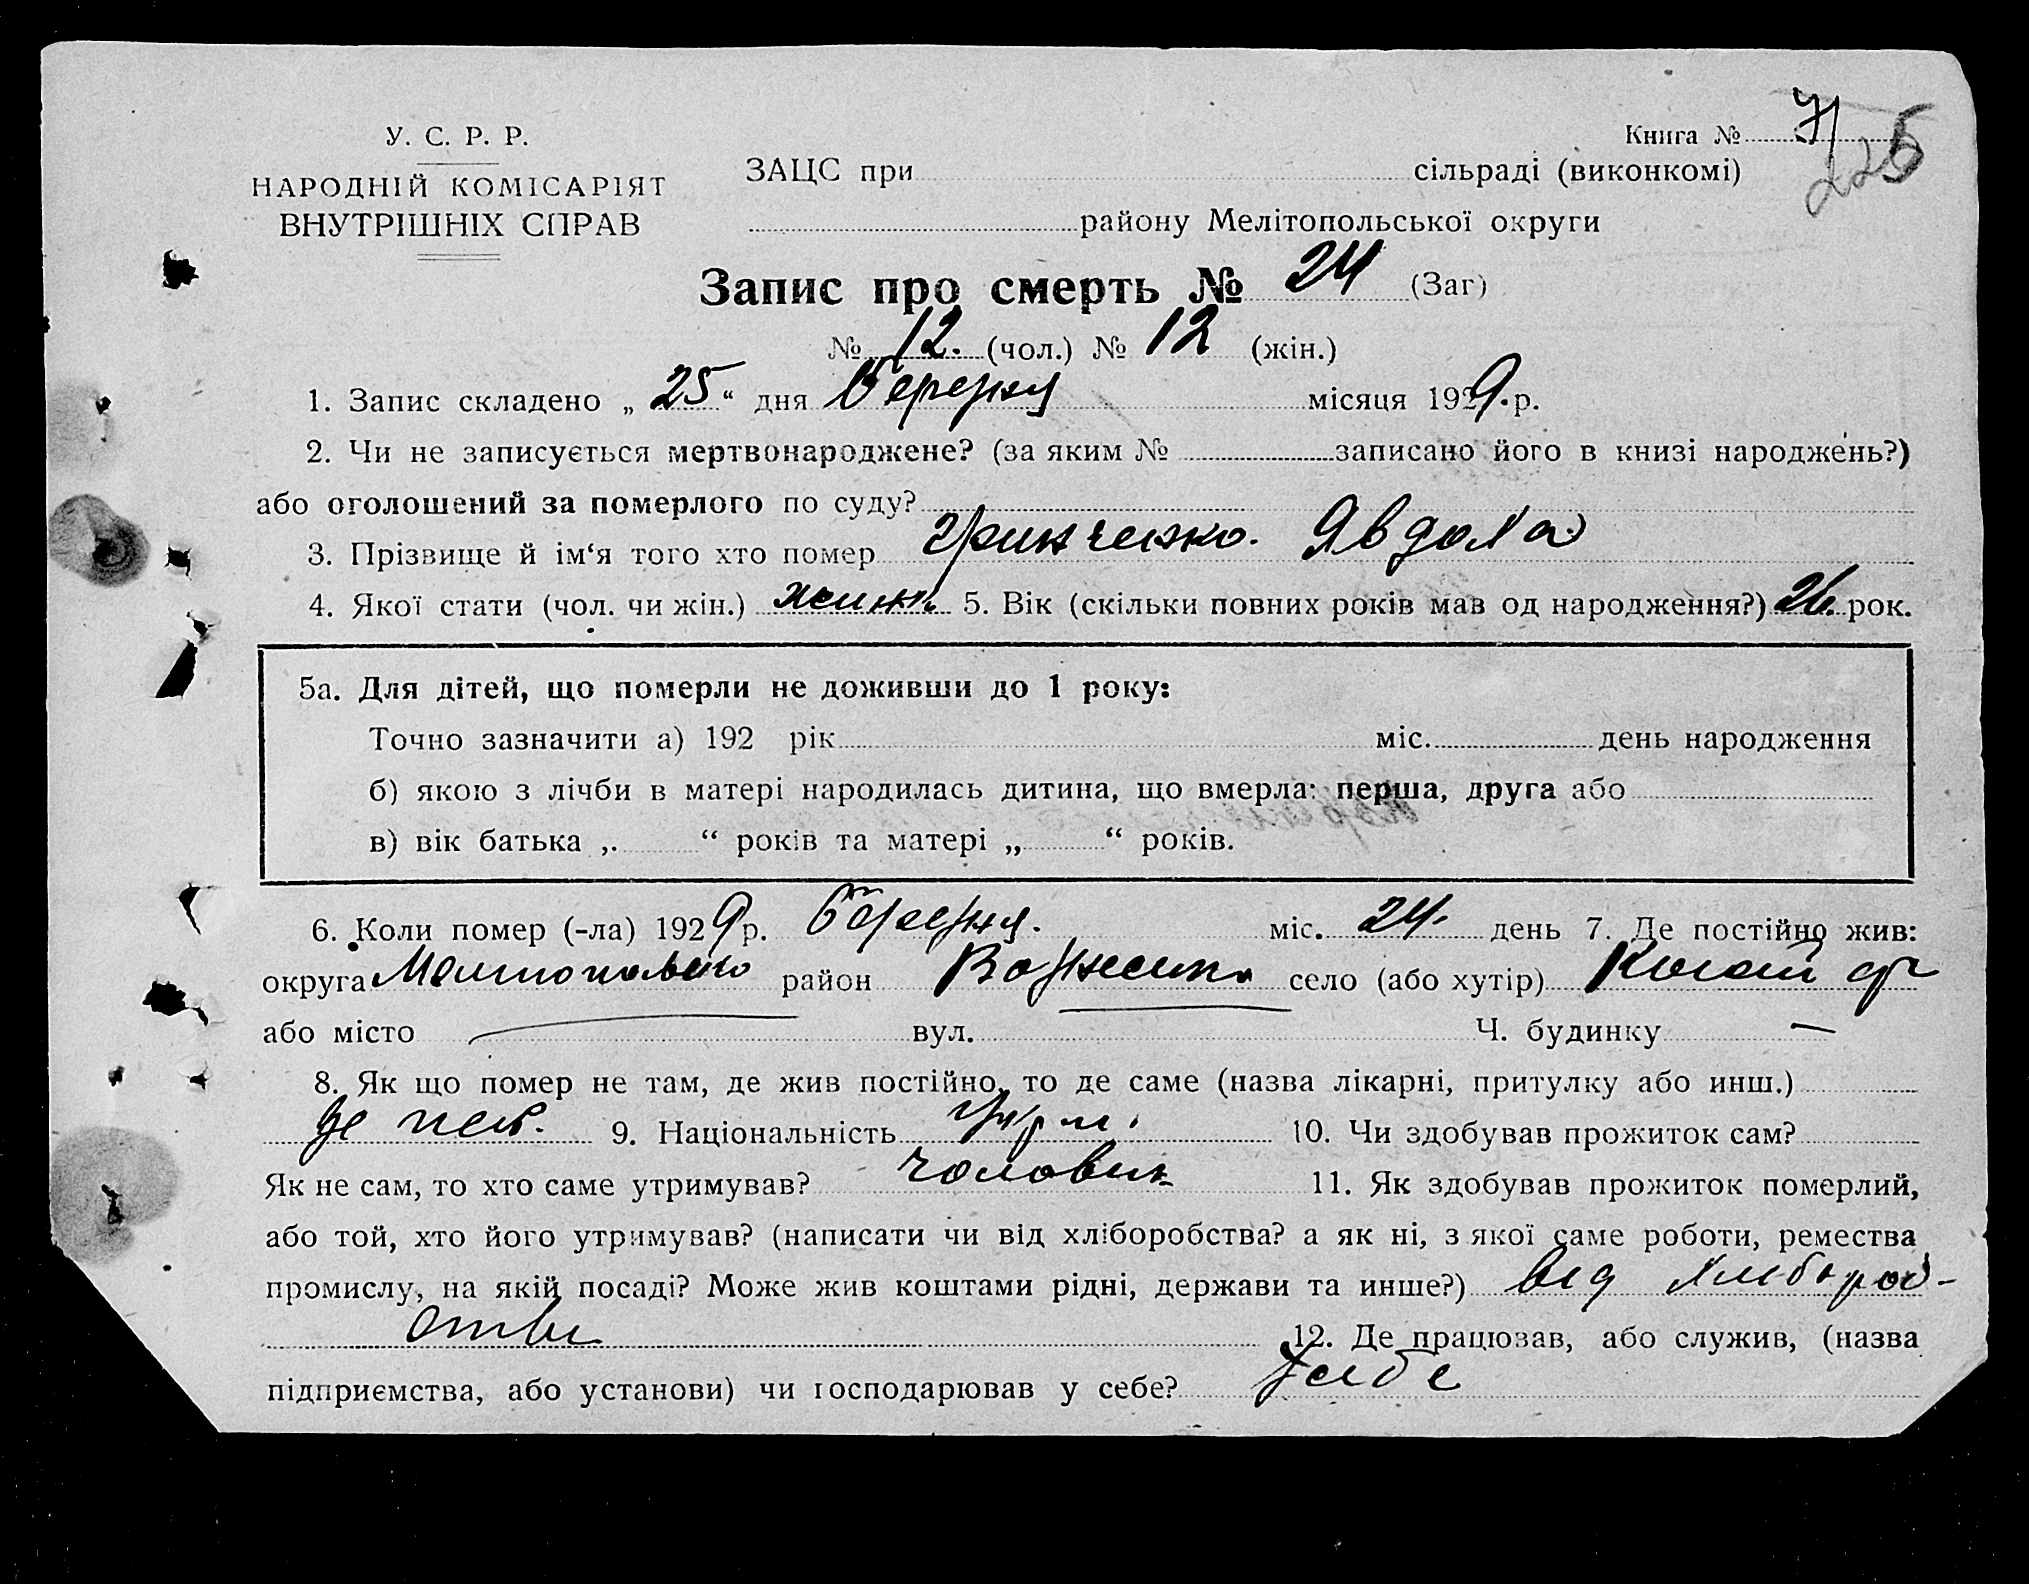 У. С. Р. Р.
НАРОДНІЙ КОМІСАРІЯТ
ВНУТРІШНІХ СПРАВ
Книга № 7
225
ЗАЦС при сільраді (виконкомі)
району Мелітопольської округи
Запис про смерть № 24 (Заг)
№ 12. (чол.) № 12 (жін.)
1. Запис складено „ 25 “ дня березня місяця 1929. р.
2. Чи не записується мертвонароджене? (за яким № записано його в книзі народжень?)
або оголошений за померлого по суду?
3. Прізвище й ім‘я того хто помер Гринченко. Явдоха
4. Якої стати (чол. чи жін.) 5. Вік (скільки повних років мав од народження?) 26. рок.
5а. Для дітей, що померли не доживши до 1 року:
Точно зазначити а) 192 рік міс. день народження
б) якою з лічби в матері народилась дитина, що вмерла: перша, друга або
в) вік батька „ “ років та матері „ “ років.
6. Коли помер (-ла) 1929 р. березня. міс. 24. день 7. Де постійно жив:
округа район село (або хутір)
або місто вул. Ч. будинку —
8. Як що помер не там, де жив постійно, то де саме (назва лікарні, притулку або инш.)
9. Національність 10. Чи здобував прожиток сам?
Як не сам, то хто саме утримував? чоловік 11. Як здобував прожиток померлий,
або той, хто його утримував? (написати чи від хліборобства? а як ні, з якої саме роботи, ремества
промислу, на якій посаді? Може жив коштами рідні, держави та инше?) від хлібороб-
ства 12. Де працював, або служив, (назва
підприємства, або установи) чи господарював у себе? у себе